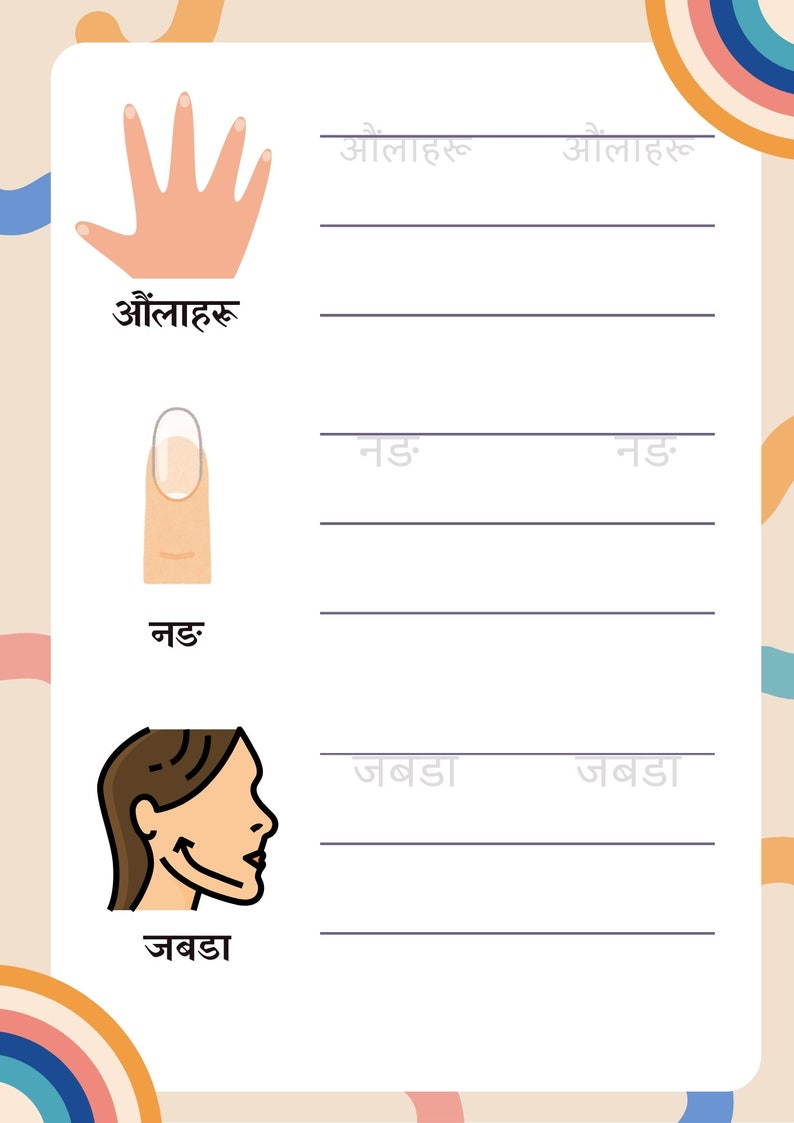 औंलाहरू औंलाहरू
औंलाहरू
नङ नङ
नङ
जबडा जबडा
जबडा